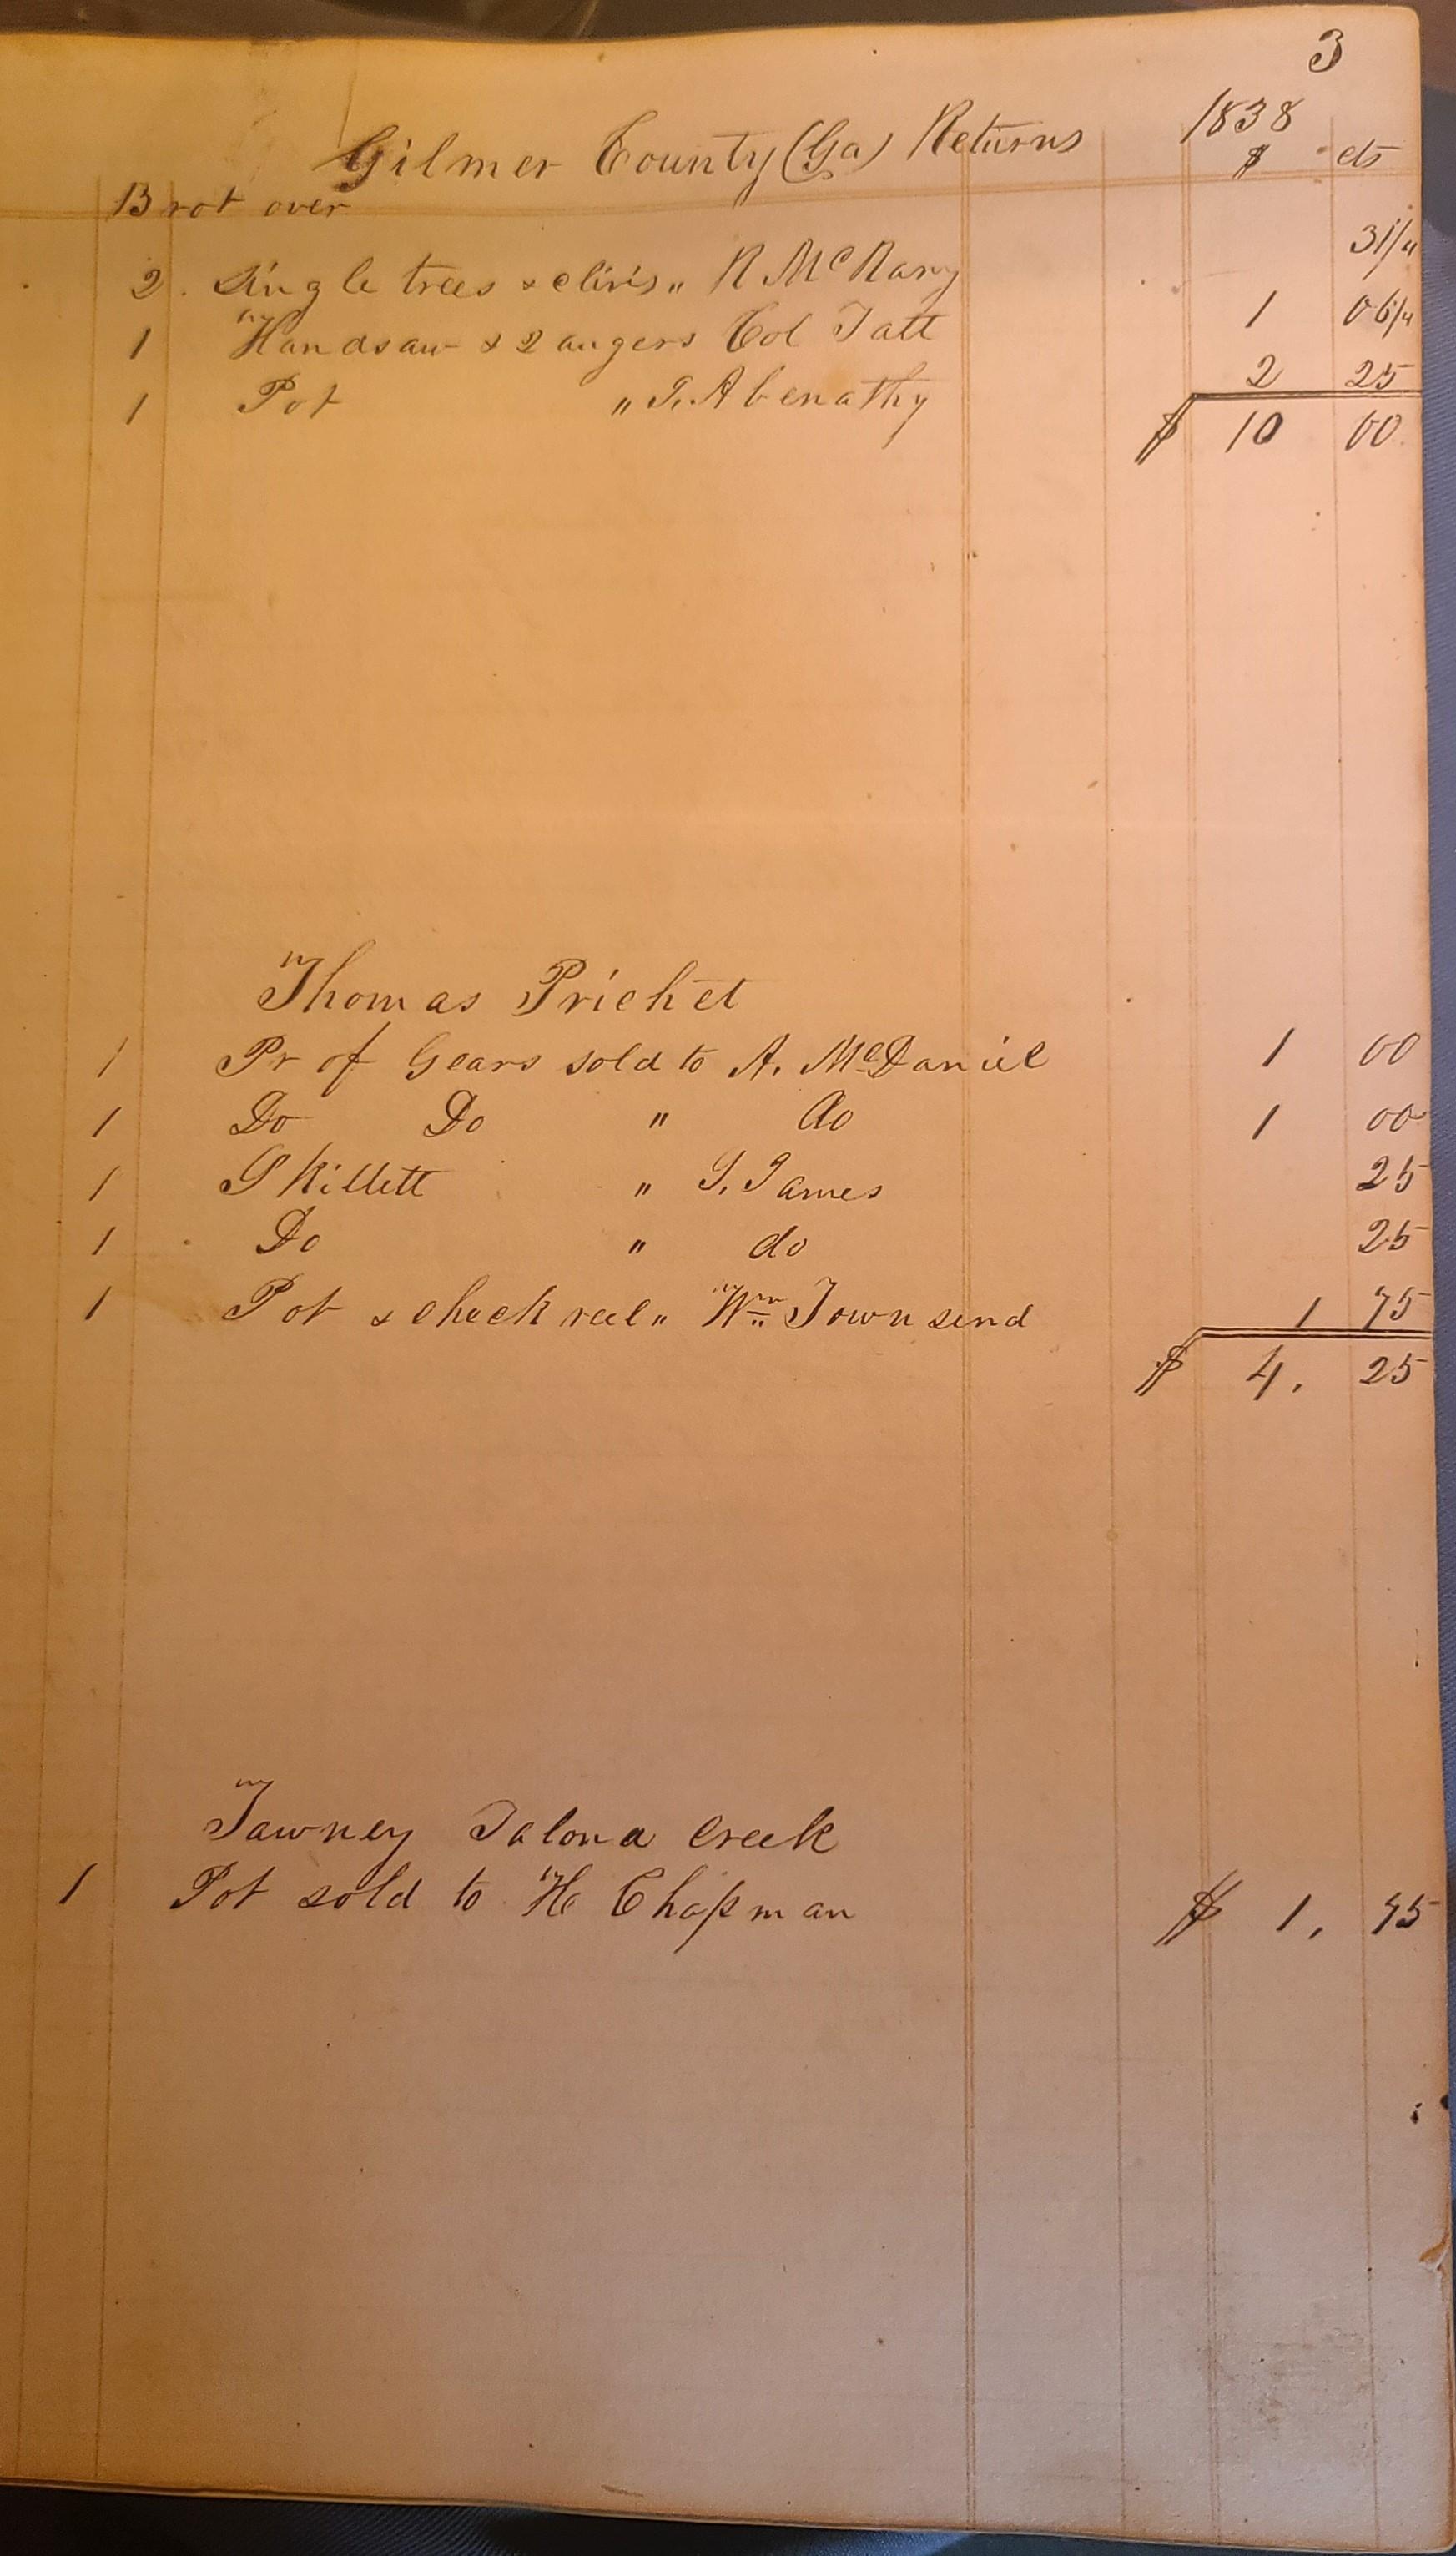 3
Gilmer County (Ga) Returns 1838
$ cts
Brot over
2 Single trees & clivis " R McNary 31/4
1 Handsaw & 2 augers Col Tatt 1 06/4
1 Pot " T. Abenathy 2 25
$ 10 00
Thomas Prichet
1 Pr of Gears sold to A. McDaniel 1 00
1 Do Do " do 1 00
1 Skillett " S. James 25
1 Do " do 25
1 Pot & check reel " Wm Townsend 1 75
$ 4. 25
Tawney Talona Creek
1 Pot sold to H Chapman $ 1. 75